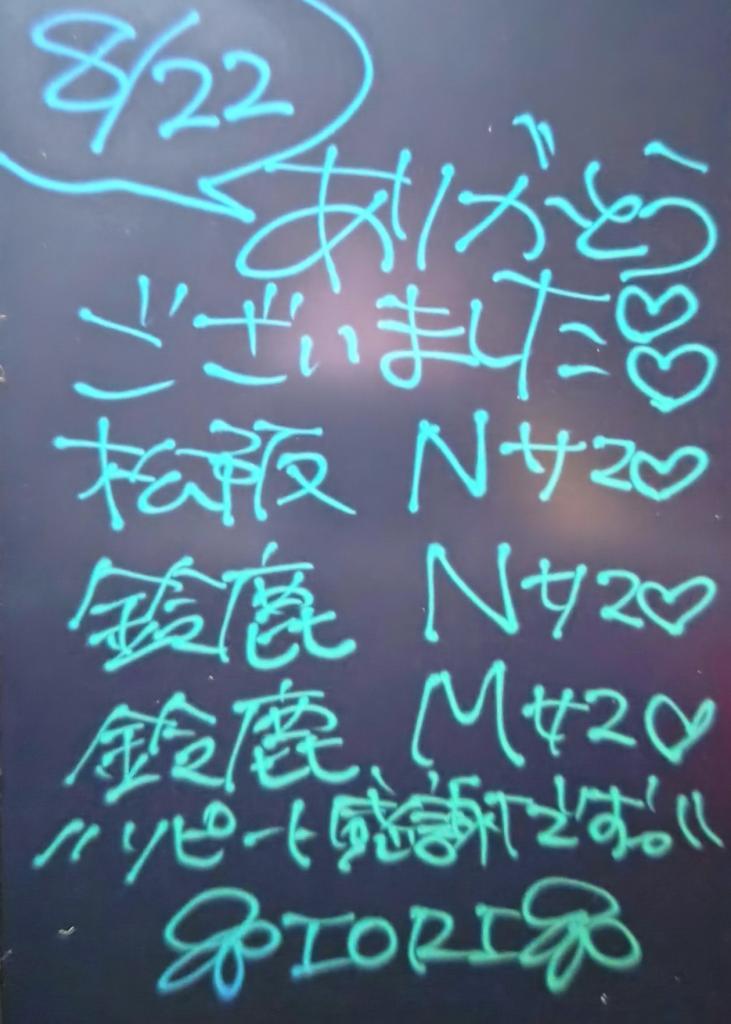 8/22
ありがとう
ございました♡♡
松阪 Nサ20♡
鈴鹿 Nサ20♡
鈴鹿 Mサ20♡
〃リピート感謝です。〃
IORI